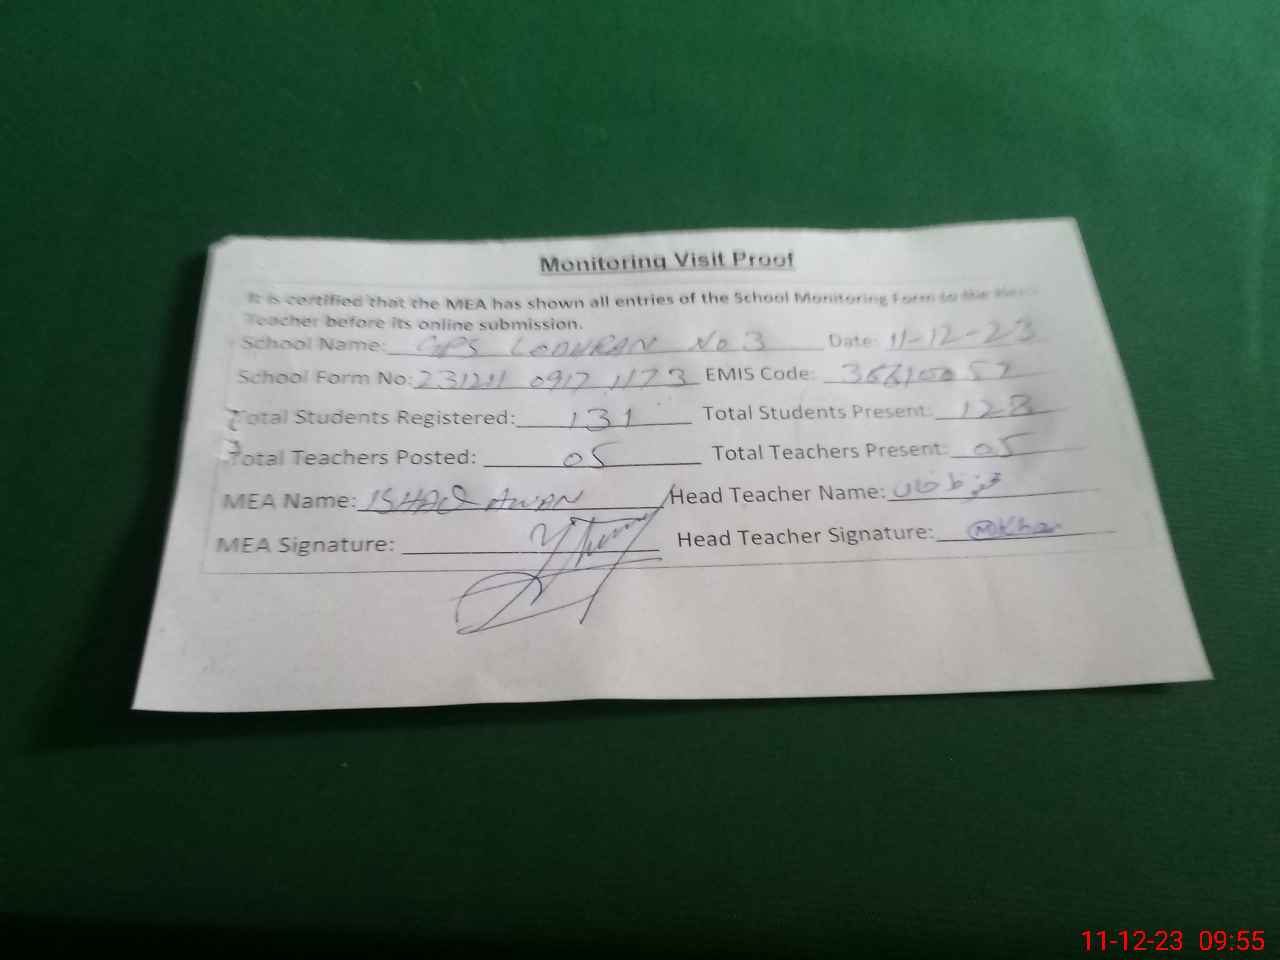 Monitoring Visit Proof
It is certified that the MEA has shown all entries of the School Monitoring Form to the Head
Teacher before its online submission.
School Name: GPS LODHRAN No 3 Date: 11-12-23
School Form No: EMIS Code:
Total Students Registered: 131 Total Students Present: 128
Total Teachers Posted: 05 Total Teachers Present: 05
MEA Name: ISHAQ AWAN Head Teacher Name: خان
MEA Signature: Head Teacher Signature: MKhan
11-12-23 09:55